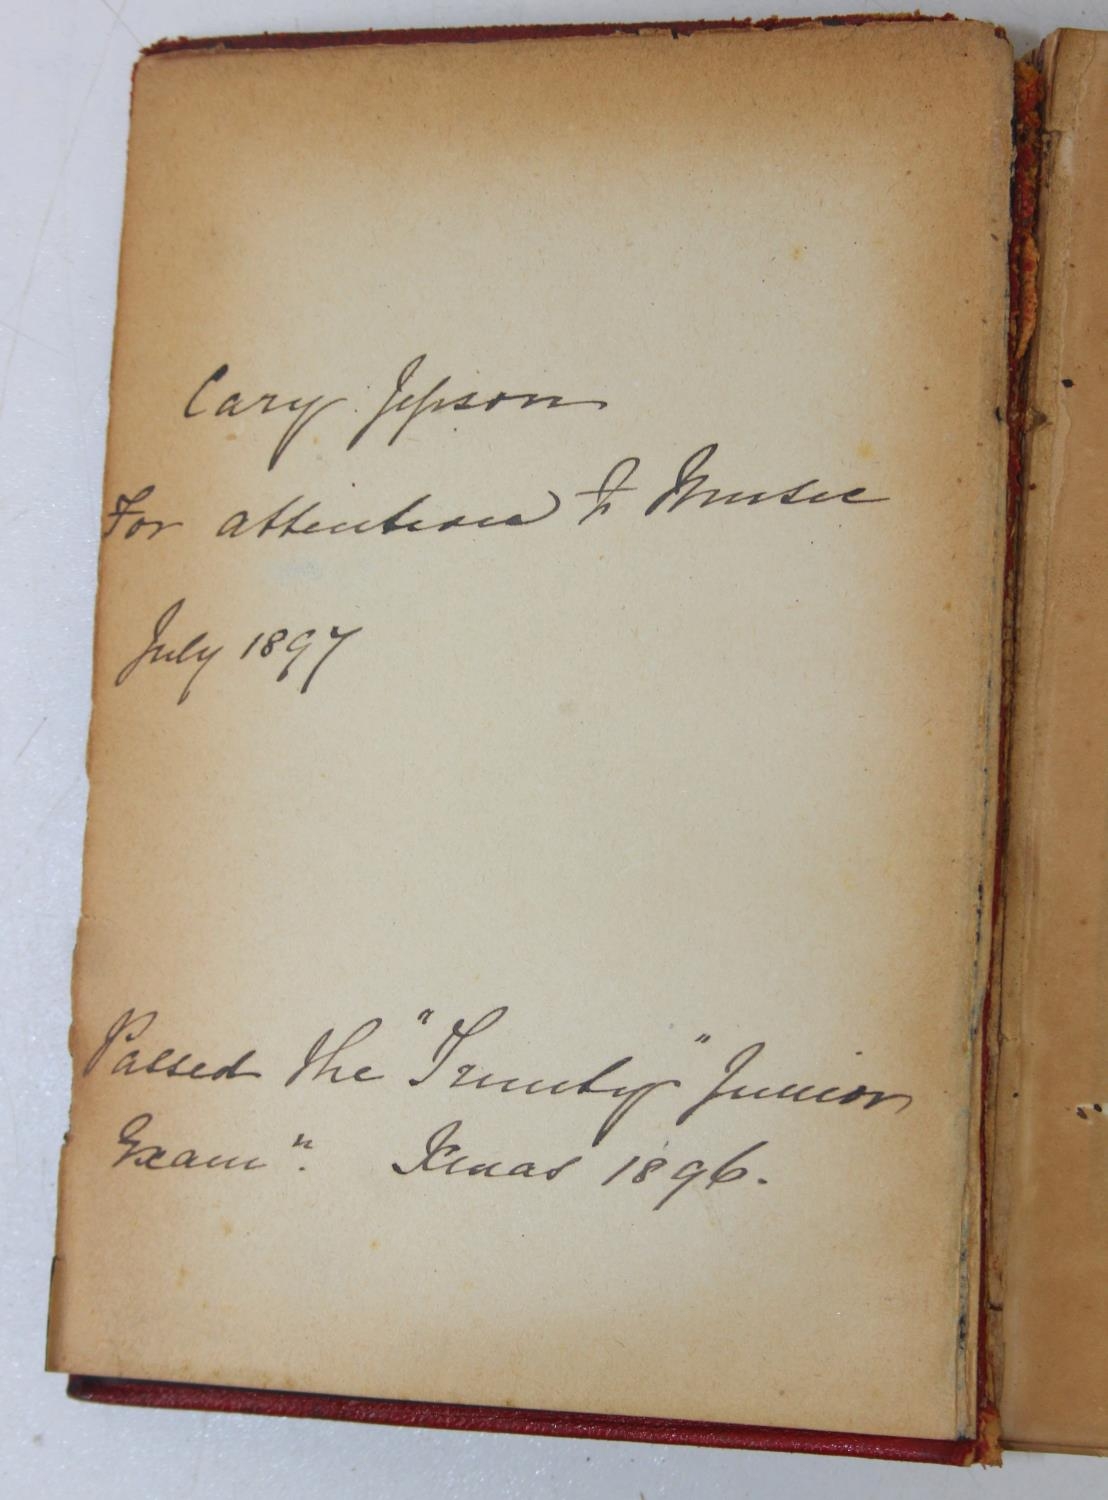 Cary Jepson
For attention to Music
July 1897
Passed the "Trinity" Junior
Exam". Xmas 1896.